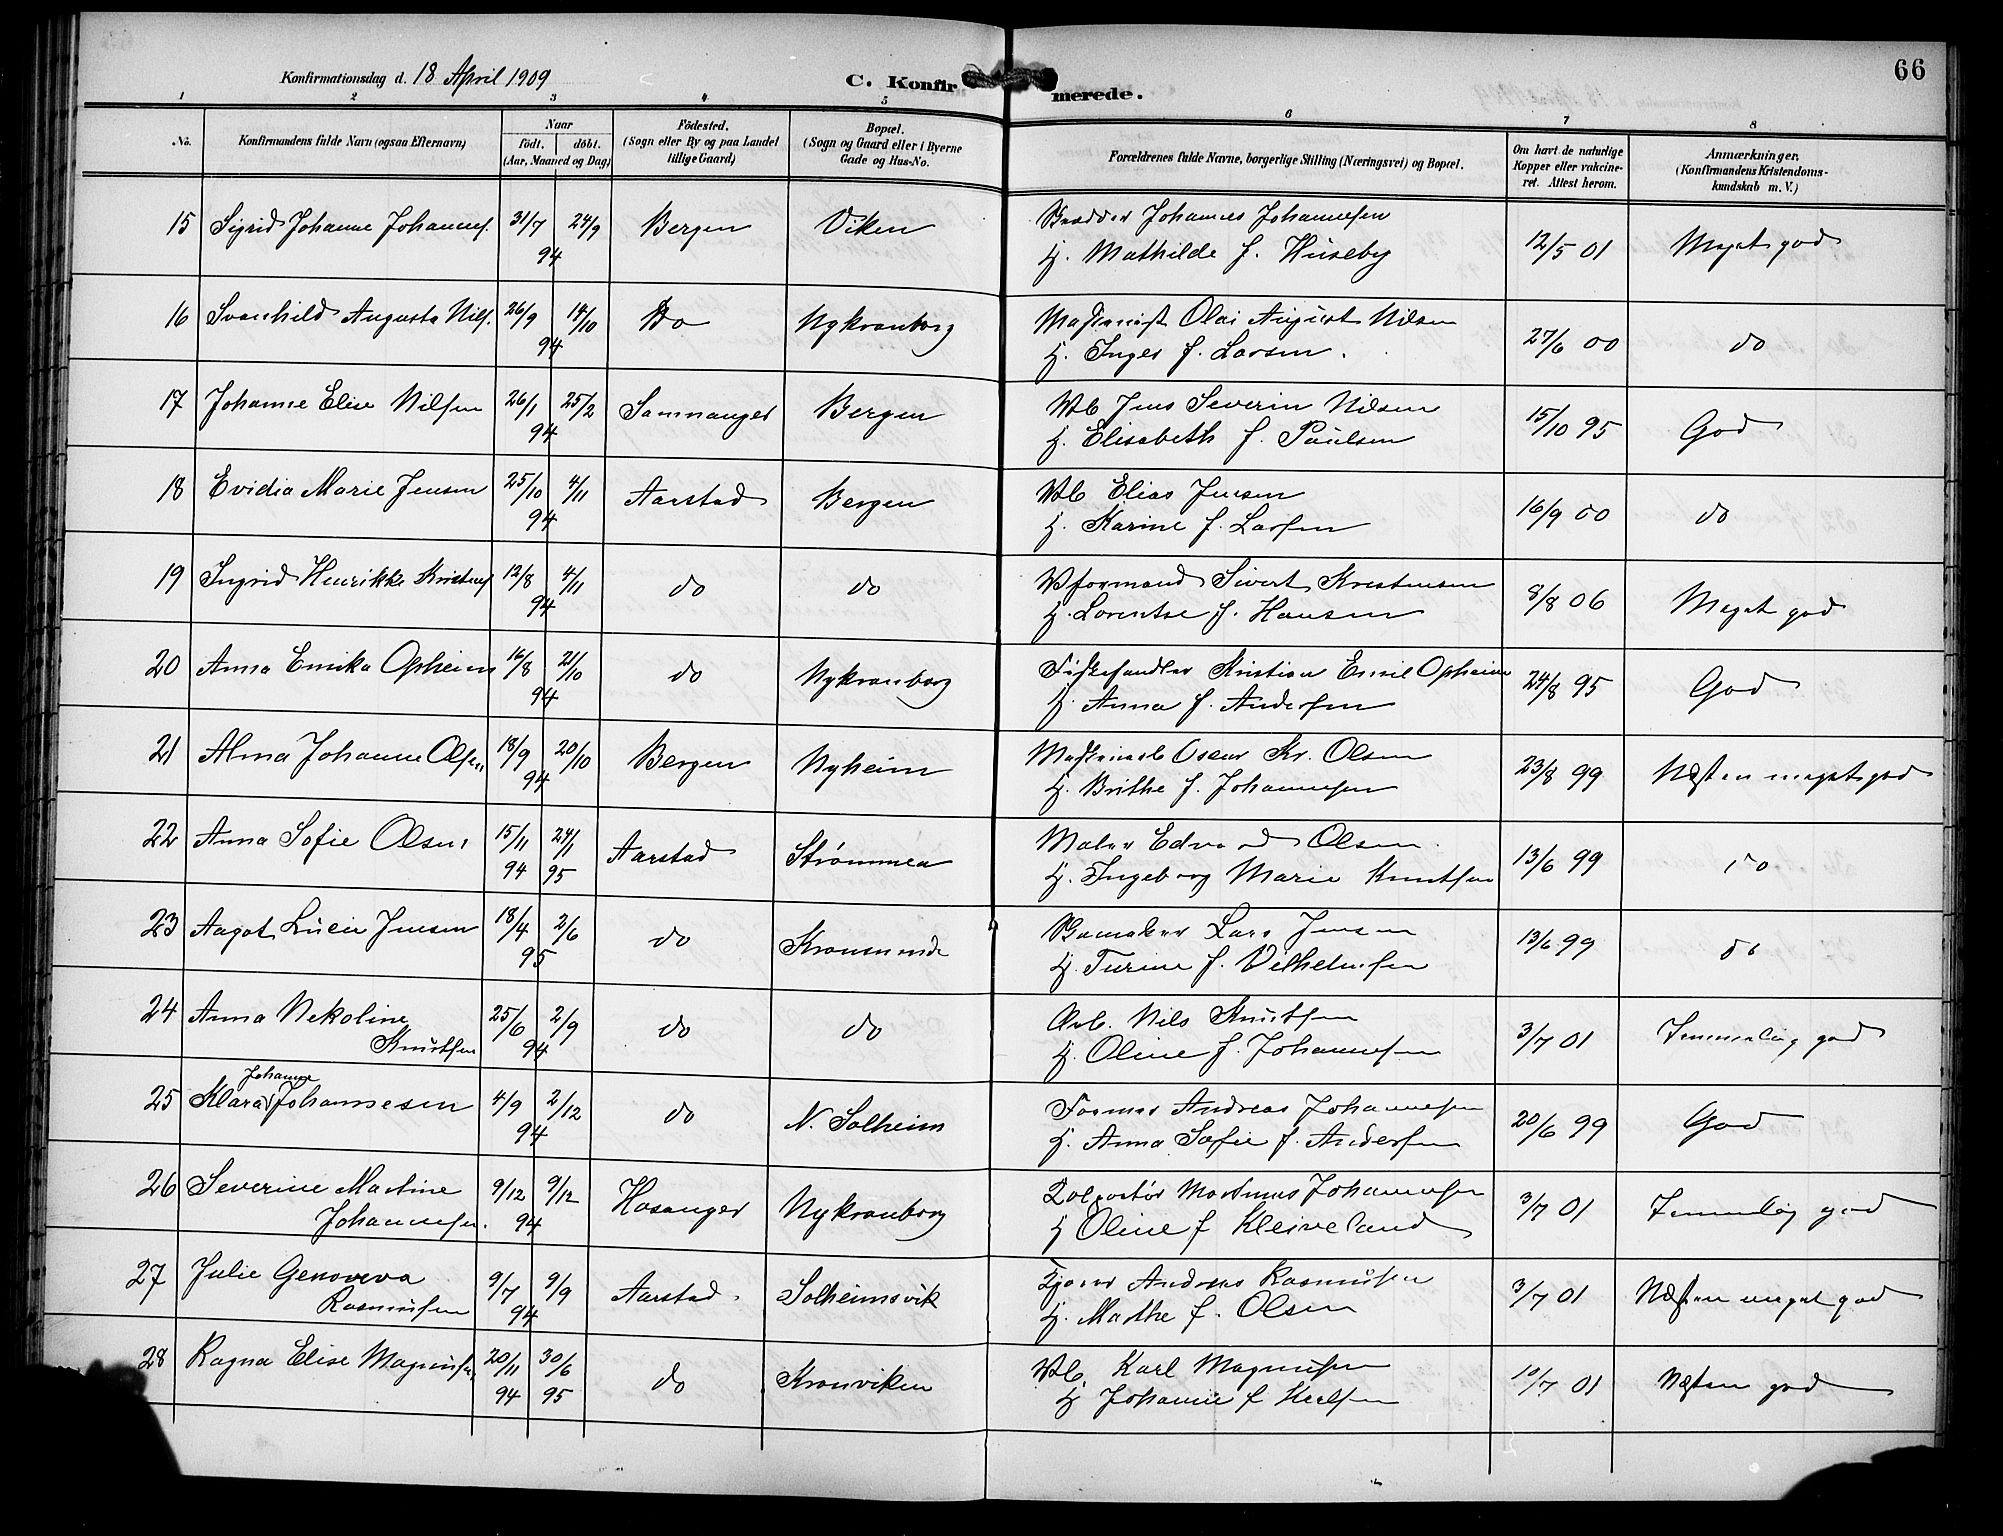 Konfirmationsdag d. 18 April 1909
C. Konfirmerede.
66
1 2 3 4 5 6 7 8
No.
Konfirmandens fulde Navn (ogsaa Efternavn)
Naar
født. døbt.
(Aar, Maaned og Dag)
Fødested.
(Sogn eller By og paa Landet
tillige Gaard)
Bopæl.
(Sogn og Gaard eller i Byerne
Gade og Hus-No.
Forældrenes fulde Navne, borgerlige Stilling (Næringsvei) og Bopæl.
Om havt de naturlige
Kopper eller vakcine-
ret. Attest herom.
Anmærkninger,
(Konfirmandens Kristendoms-
kundskab m. V.)
15 Sigrid Johanne Johannes. 31/7 24/9 Bergen Viken Johannes Johannesen 12/5 01 Meget god
94 H. Mathilde f. Huseby
16 Svanhild Augusta Nils. 26/9 14/10 Do Nykronborg Maskinist Olai August Nilsen 27/6 00 do
94 H. Inger f. Larsen.
17 Johanne Elise Nilsen 26/1 25/2 Samnanger Bergen Jens Severin Nilsen 15/10 95 God
94 H. Elisabeth f. Paulsen
18 Evidia Marie Jensen 25/10 4/11 Aarstad Bergen Elias Jensen 16/9 00 do
94 H. Karine f. Larsen
19 Ingrid Henrikke Kristens 12/8 4/11 do do Vformand Sivert Kristensen 8/8 06 Meget god
94 H. Lorentse f. Hansen
20 Anna Emika Opheim 16/8 21/10 do Nykronborg Fiskehandler Kristian Emil Opheim 24/8 95 God
94 H. Anna f. Andersen
21 Alma Johanne Olsen 18/9 20/10 Bergen Nyheim Maskinarb Oscar Kr. Olsen 23/8 99 Næsten meget god
94 H. Brithe f. Johannesen
22 Anna Sofie Olsen 15/11 24/1 Aarstad Strømmen Maler Edvard Olsen 13/6 99 do
94 95 H. Ingeborg Marie Knutsen
23 Aagot Lucie Jensen 18/4 2/6 do Kronsminde Lars Jensen 13/6 99 do
95 H. Turine f. Vilhelmsen
24 Anna Nekoline 25/6 2/9 do do Arb. Nils Knutsen 3/7 01 Temmelig god
Knutsen 94 H. Oline f. Johannesen
25 Klara Johanne Johannesen 4/9 2/12 do N. Solheim Former Andreas Johannesen 20/6 99 God
94 H. Anna Sofie f. Andersen
26 Severine Martine 9/12 9/12 Hosanger Nykronborg Martinus Johannesen 3/7 01 Temmelig god
Johannesen. 94 H Oline f Kleiveland
27 Julie Genoveva 9/7 9/9 Aarstad Solheimsvik Andreas Rasmusen 3/7 01 Næsten meget god
Rasmusen 94 H. Marthe f. Olsen
28 Ragna Elise Magnusen 20/11 30/6 do Kronviken Karl Magnusen 10/7 01 Næsten god
94 95 H Johanne f